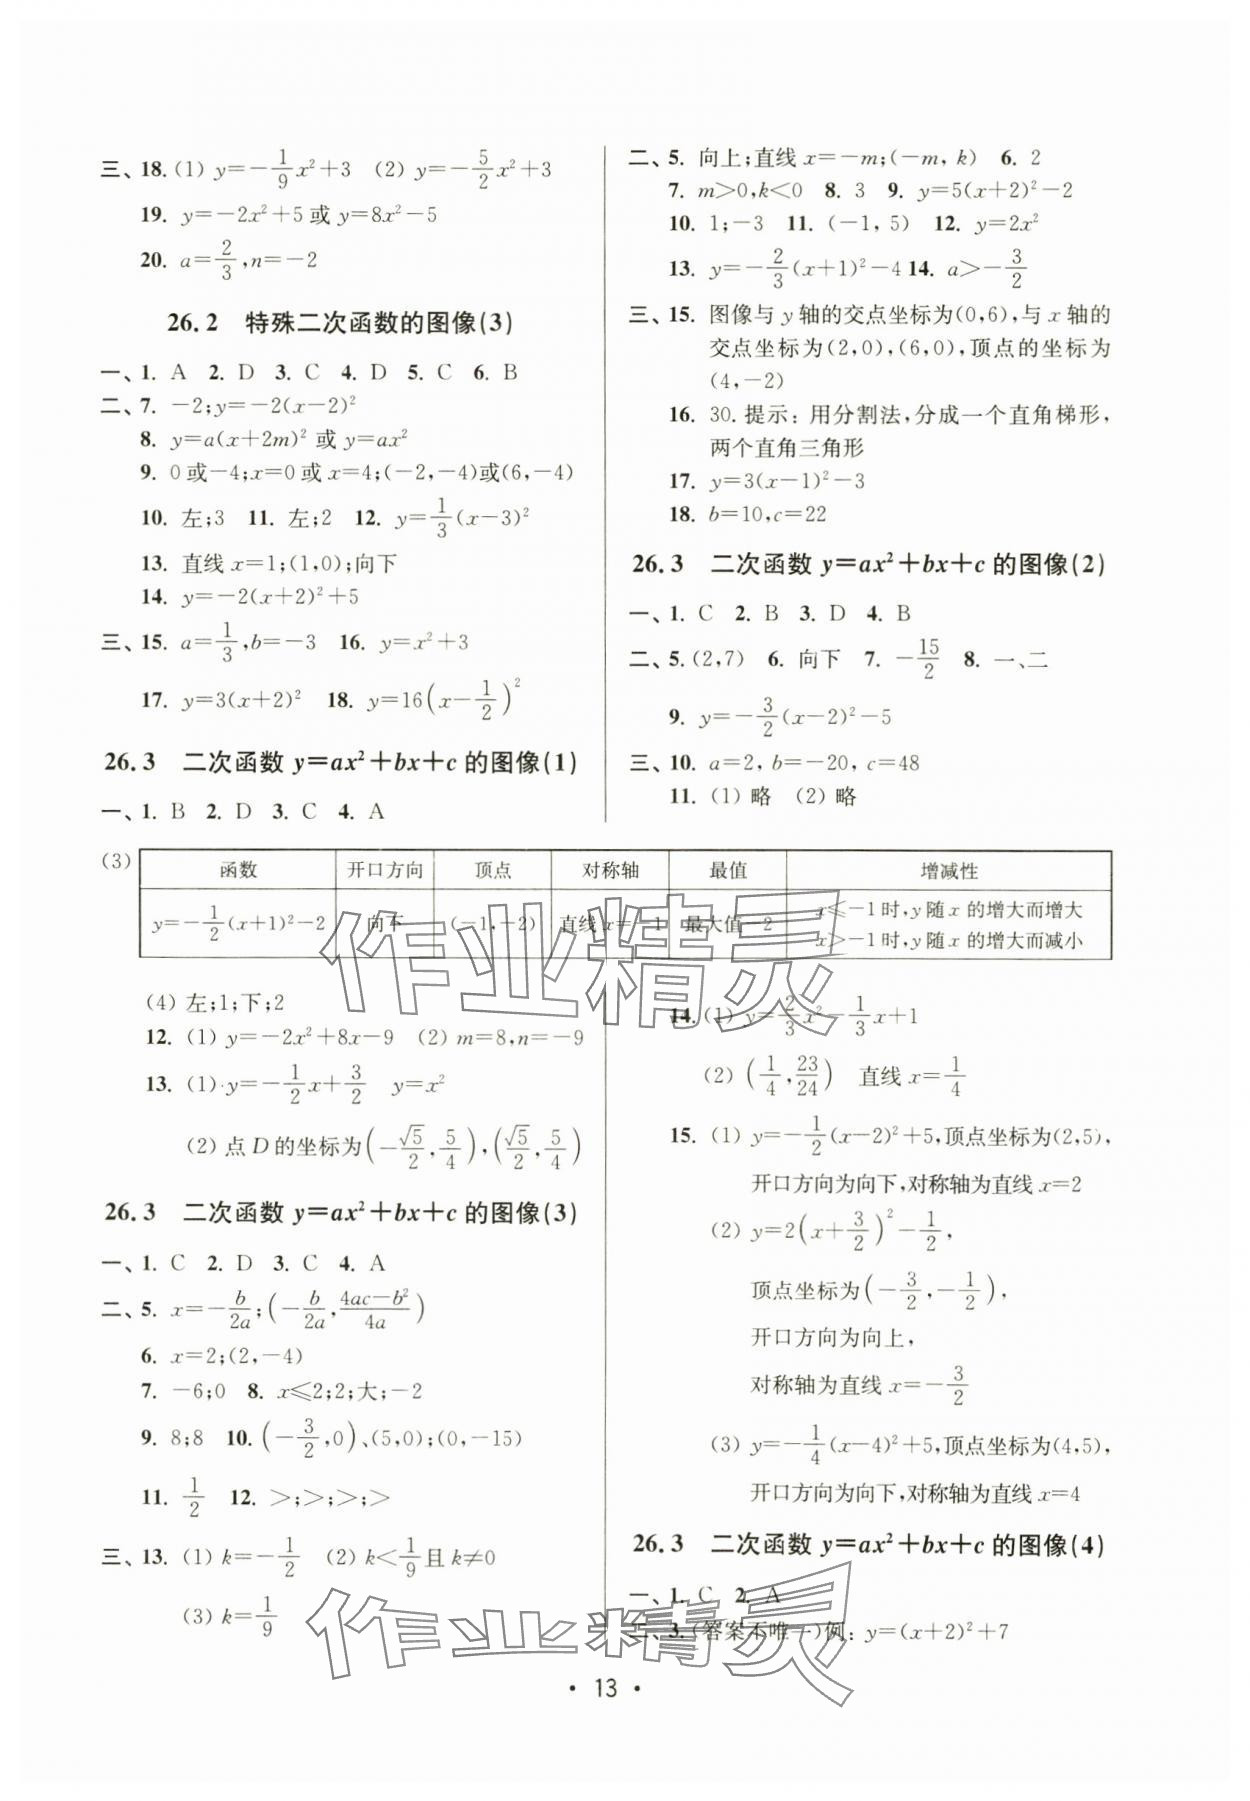 三、18. (1) y=-1/9x²+3 (2) y=-5/2x²+3
19. y=-2x²+5或y=8x²-5
20. a=2/3,n=-2
26.2 特殊二次函数的图像(3)
一、1. A 2. D 3. C 4. D 5. C 6. B
二、7. -2;y=-2(x-2)²
8. y=a(x+2m)²或y=ax²
9. 0或-4;x=0或x=4;(-2,-4)或(6,-4)
10. 左;3 11. 左;2 12. y=1/3(x-3)²
13. 直线x=1;(1,0);向下
14. y=-2(x+2)²+5
三、15. a=1/3,b=-3 16. y=x²+3
17. y=3(x+2)² 18. y=16(x-1/2)²
26.3 二次函数y=ax²+bx+c的图像(1)
一、1. B 2. D 3. C 4. A
二、5. 向上;直线x=-m;(-m, k) 6. 2
7. m>0,k<0 8. 3 9. y=5(x+2)²-2
10. 1;-3 11. (-1, 5) 12. y=2x²
13. y=-2/3(x+1)²-4 14. a>-3/2
三、15. 图像与y轴的交点坐标为(0,6),与x轴的
交点坐标为(2,0),(6,0),顶点的坐标为
(4,-2)
16. 30. 提示:用分割法,分成一个直角梯形,
两个直角三角形
17. y=3(x-1)²-3
18. b=10,c=22
26.3 二次函数y=ax²+bx+c的图像(2)
一、1. C 2. B 3. D 4. B
二、5. (2,7) 6. 向下 7. -15/2 8. 一、二
9. y=-3/2(x-2)²-5
三、10. a=2, b=-20, c=48
11. (1) 略 (2) 略
(3) 函数 开口方向 顶点 对称轴 最值 增减性
y=-1/2(x+1)²-2 向下 (-1,-2) 直线x=-1 最大值-2 x≤-1时,y随x的增大而增大
x>-1时,y随x的增大而减小
(4) 左;1;下;2
12. (1) y=-2x²+8x-9 (2) m=8,n=-9
13. (1) y=-1/2x+3/2 y=x²
(2) 点D的坐标为(-√5/2,5/4),(√5/2,5/4)
26.3 二次函数y=ax²+bx+c的图像(3)
一、1. C 2. D 3. C 4. A
二、5. x=-b/2a;(-b/2a,4ac-b²/4a)
6. x=2;(2,-4)
7. -6;0 8. x≤2;2;大;-2
9. 8;8 10. (-3/2,0)、(5,0);(0,-15)
11. 1/2 12. >;>;>;>
三、13. (1) k=-1/2 (2) k<1/9且k≠0
(3) k=1/9
14. (1) y=2/3x²-1/3x+1
(2) (1/4,23/24) 直线x=1/4
15. (1) y=-1/2(x-2)²+5,顶点坐标为(2,5),
开口方向为向下,对称轴为直线x=2
(2) y=2(x+3/2)²-1/2,
顶点坐标为(-3/2,-1/2),
开口方向为向上,
对称轴为直线x=-3/2
(3) y=-1/4(x-4)²+5,顶点坐标为(4,5),
开口方向为向下,对称轴为直线x=4
26.3 二次函数y=ax²+bx+c的图像(4)
一、1. C 2. A
二、3. (答案不唯一)例:y=(x+2)²+7
· 13 ·
作业精灵
作业精灵